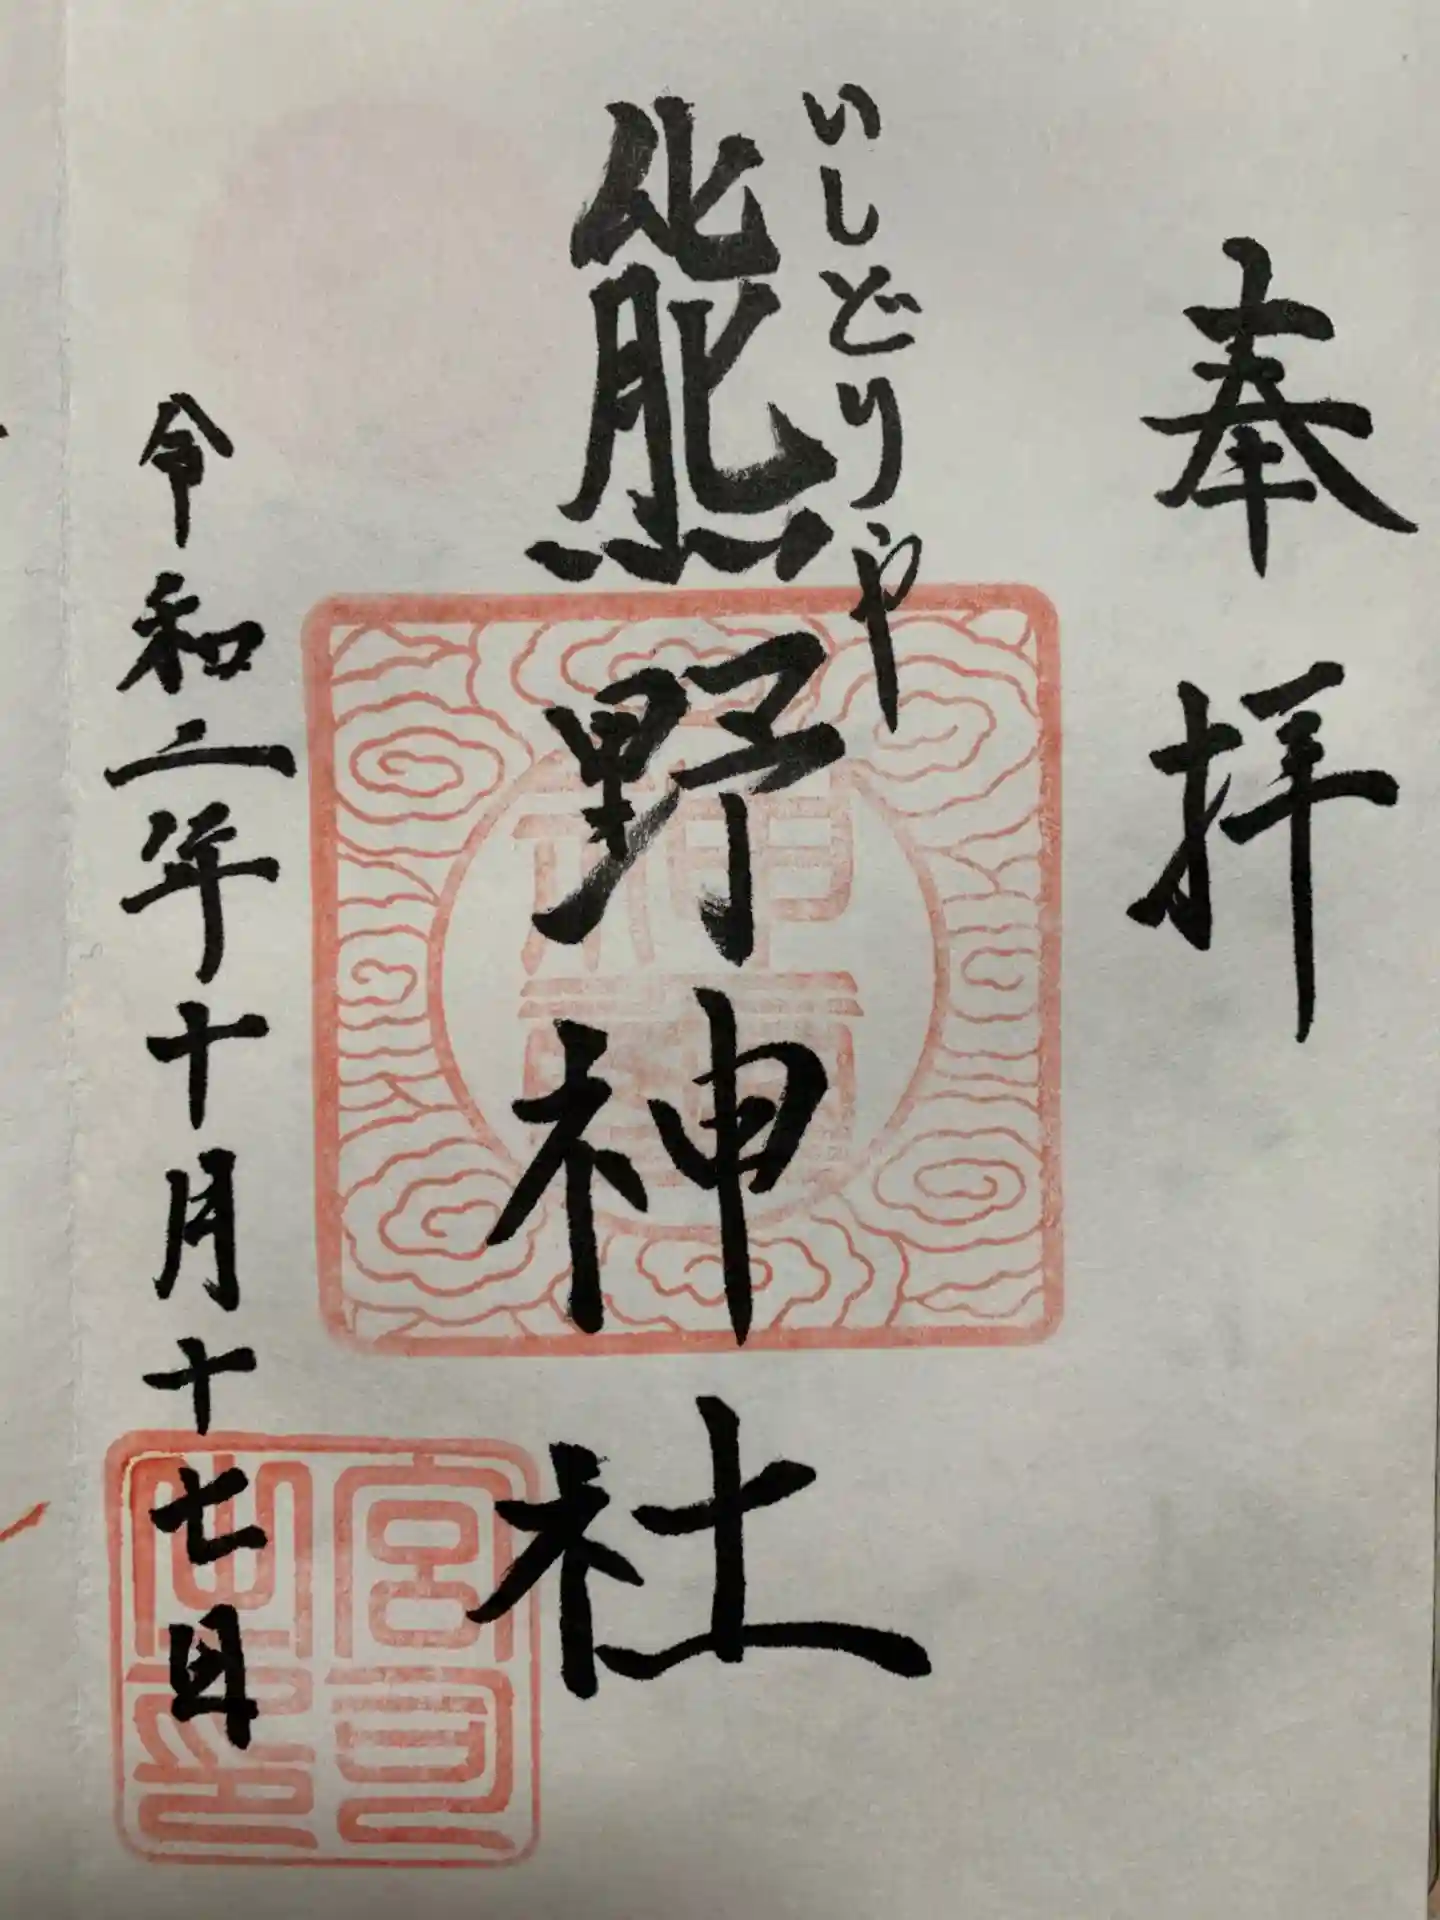 奉拝
いしどりや
熊野神社
神璽
令和二年十月十七日
宮司之印